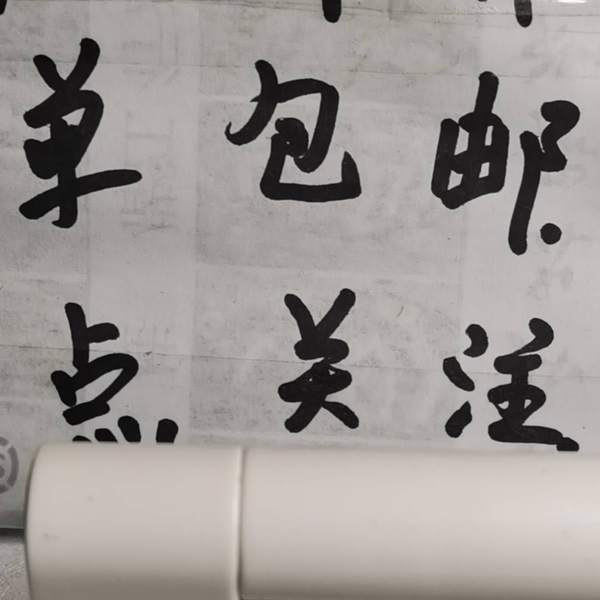 单包邮.
点关注